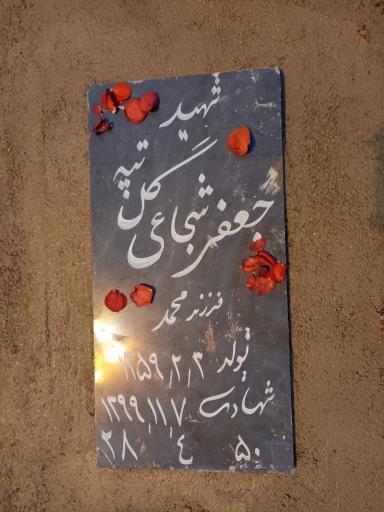 شهید
جعفر شجاعی گل تپه
فرزند محمد
تولد ۱۳۵۹٫۲٫۳
شهادت ۱۳۹۹٫۱۱٫۷
۵۰ ۴ ۲۸